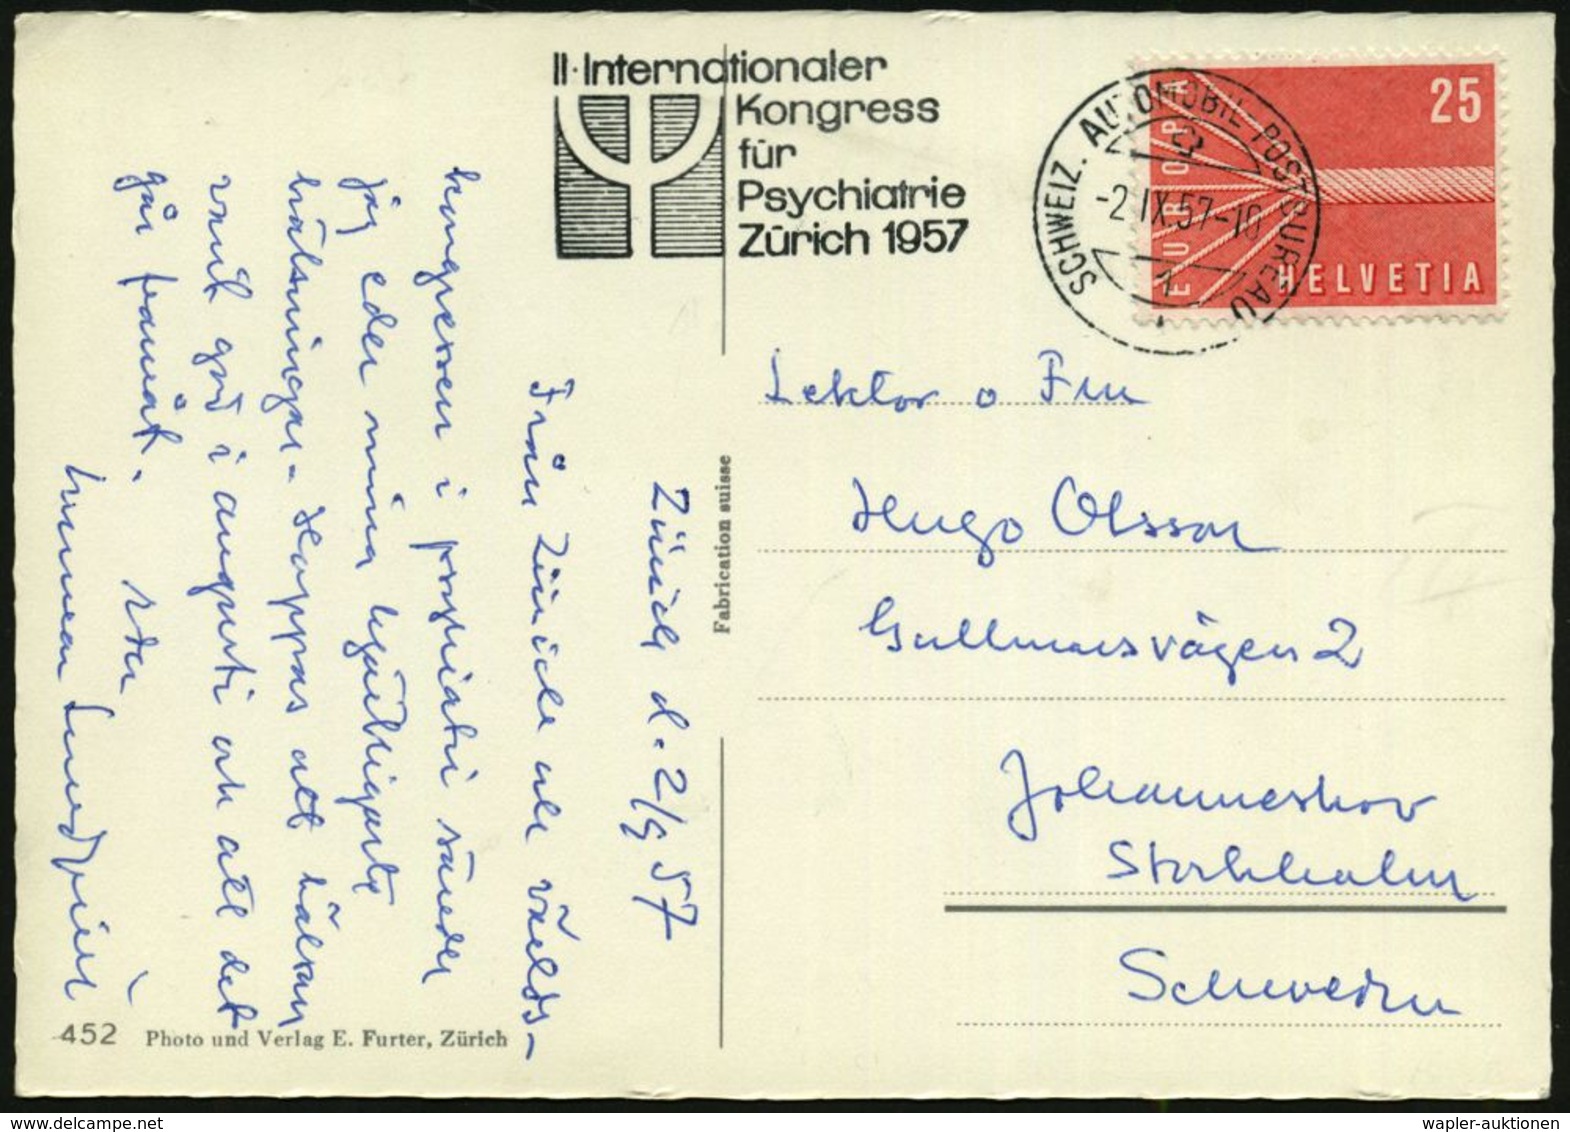 II. Internationaler
Kongress
für
Psychiatrie
Zürich 1957
SCHWEIZ. AUTOMOBIL-POSTBUREAU
-2.IX.57-10
1
EUROPA
25
HELVETIA
Zürich d. 2/9 57
Från Zürich och världs-
kongressen i psykiatri sänder
jag eder mina hjärtligaste
hälsningar. Hoppas att hälsan
varit god i augusti och att det
går framåt.
Eder
Lektor o Fru
Hugo Olsson
Gullmarsvägen 2
Johanneshov
Stockholm
Schweden
Fabrication suisse
452 Photo und Verlag E. Furter, Zürich
wapler-auktionen